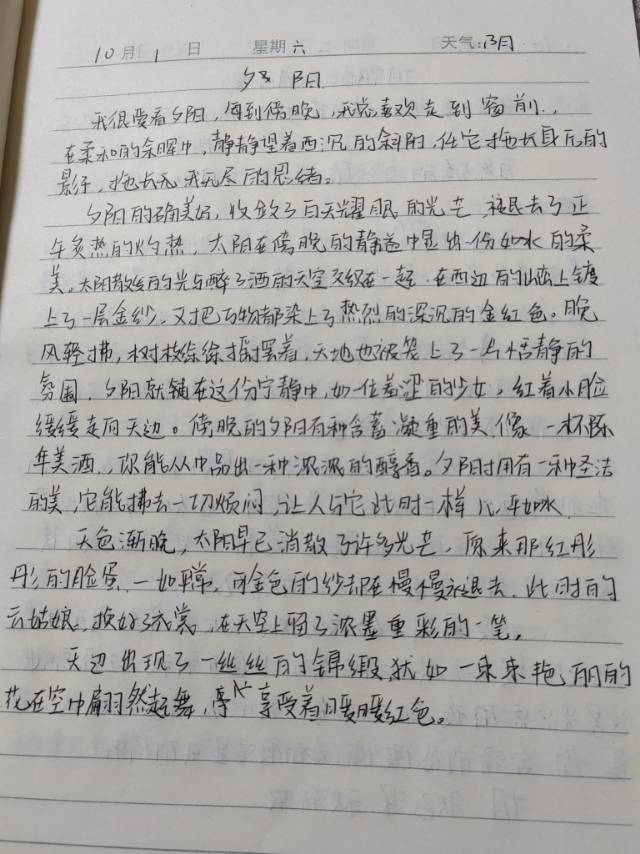 10月 1 日 星期 六 天气:阴
夕阳
我很爱看夕阳,每到傍晚,我总喜欢走到窗前,
在柔和的余晖中,静静望着西沉的斜阳,任它拖长身后的
影子,拖长无我无尽的思绪。
夕阳的确美好,收敛了白天耀眼的光芒,褪去了正
午炎热的灼热,太阳在傍晚的静谧中显出一份如水的柔
美,太阳散发的光与醉了酒的天空交织在一起,在西边的山峦上镀
上了一层金纱,又把万物都染上了热烈的深沉的金红色。晚
风轻拂,树枝徐徐摇摆着,天地也被笼上了一片恬静的
氛围,夕阳就铺在这份宁静中,如一位羞涩的少女,红着小脸
缓缓走向天边。傍晚的夕阳有种含蓄凝重的美,像一杯陈
年美酒,你能从中品出一种浓浓的醇香。夕阳拥有一种圣洁
的美,它能拂去一切烦闷,让人与它此时一样心平如水
天色渐晚,太阳早已消散了许多光芒,原来那红彤
彤的脸蛋,一如平常,可金色的纱却在慢慢褪去,此时的
云姑娘,换好了衣裳,在天空上留了浓墨重彩的一笔。
天边出现了一丝丝的锦缎,犹如一束束艳丽的
花在空中翩然起舞,享受着暖暖红色。